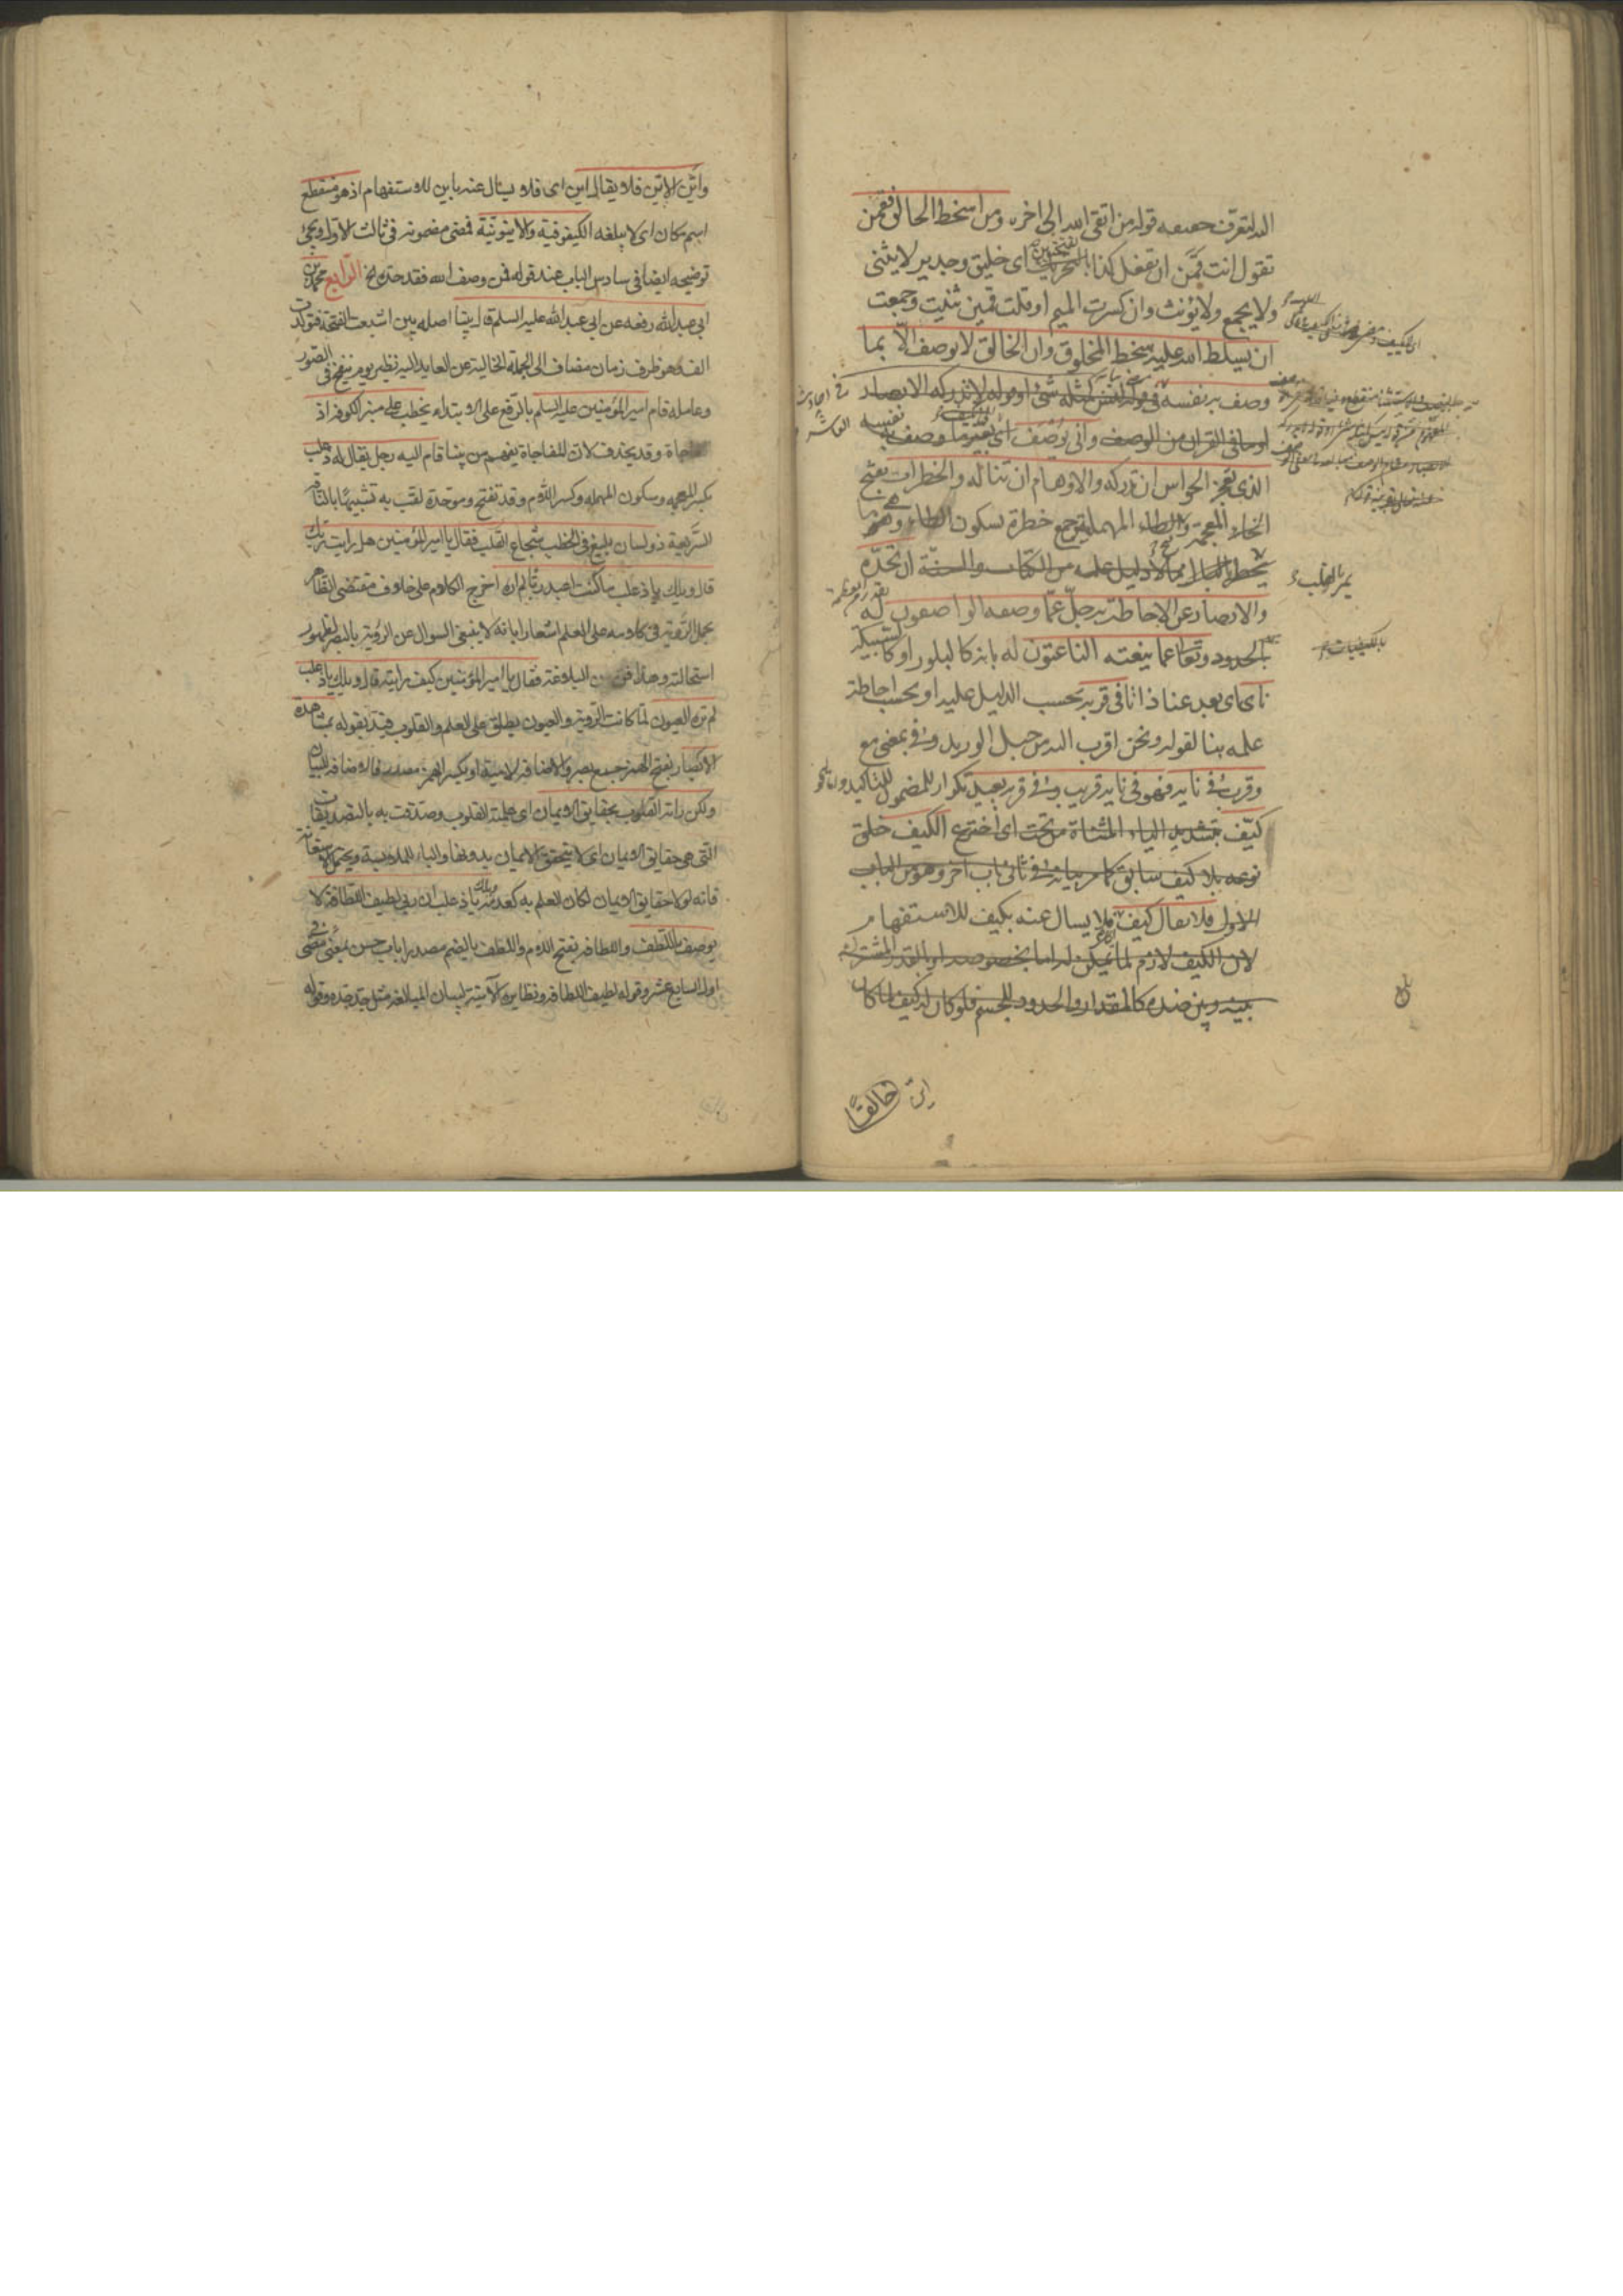 الله لتعرف حقيقة قوله من اتقى الله الى اخره ومن اسخط الخالق فقمن
تقول انت قمن ان تفعل كذا بالتحريك اى خليق وجدير لا يثنى
ولا يجمع ولا يؤنث وان كسرت الميم او قلت قمين ثنيت وجمعت
ان يسلط الله عليه سخط المخلوق وان الخالق لا يوصف الا بما
وصف به نفسه فى قوله ليس كمثله شئ او قوله لا تدركه الابصار
او ما فى القران من الوصف وانى يوصف اى بغير ما وصف به نفسه
الذى يعجز الحواس ان تدركه والاوهام ان تناله والخطرات بفتح
الخاء المعجمة والطاء المهملة جمع خطرة بسكون الطاء وهى ما
يخطر بالبال مما لا دليل عليه من الكتاب والسنة ان تحده
والابصار عن الاحاطة به جل عما وصفه الواصفون له
بالحدود وتعالى عما ينعته الناعتون له بانه كالبلور او كالسبيكة
نأى اى بعد عنا ذاتا فى قربه بحسب الدليل عليه او بحسب احاطة
علمه بنا لقوله ونحن اقرب اليه من حبل الوريد وفى بمعنى مع
وقرب فى نأيه فهو فى نأيه قريب وفى قربه بعيد تكرار للمضمون للتاكيد
كيف بتشديد الياء المثناة من تحت اى اخترع الكيف خلق
نوعه بلا كيف سابق كما مر بيانه فى ثانى باب اخر وهو من الباب
الاول فلا يقال كيف فلا يسال عنه بكيف للاستفهام
لان الكيف لازم لما يمكن له اما بخصوصه او بالقدر المشترك
بينه وبين ضده كالمقدار والحدود للجسم فلو كان له كيف لما كان
خالقا
يمر بالقلب
بالكيفيات
واين الاين فلا يقال اين اى فلا يسال عنه باين للاستفهام اذ هو منقطع
اسم مكان اى لا يبلغه الكيفوفية والاينونية فمضى مضمونه فى ثالث الاول ويجئ
توضيحه ايضا فى سادس الباب عند قوله فمن وصف الله فقد حده الخ الرابع محمد بن
ابى عبد الله رفعه عن ابى عبد الله عليه السلم قال بينا اصله بين اشبعت الفتحة فتولدت
الف وهو ظرف زمان مضاف الى الجملة الخالية عن العايد اليه نظير يوم ينفخ فى الصور
وعامله قام امير المؤمنين عليه السلم بالرفع على الابتداء يخطب على منبر الكوفة اذ
للمفاجاة وقد يحذف لان المفاجاة يفهم من بينا قام اليه رجل يقال له ذعلب
بكسر المعجمة وسكون المهملة وكسر اللام وقد تفتح وموحدة لقب به تشبيها بالناقة
السريعة ذو لسان بليغ فى الخطب شجاع القلب فقال يا امير المؤمنين هل رايت ربك
قال ويلك يا ذعلب ما كنت اعبد ربا لم اره اخرج الكلام على خلاف مقتضى الظاهر
بحمل الرؤية فى كلامه على العلم اشعارا بانه لا ينبغى السوال عن الرؤية بالبصر لظهور
استحالته وهذا فن من البلاغة فقال يا امير المؤمنين كيف رايته قال ويلك يا ذعلب
لم تره العيون لما كانت الرؤية والعيون يطلق على العلم والقلوب قيد بقوله بمشاهدة
الابصار بفتح الهمزة جمع بصر والاضافة لامية او بكسر الهمزة مصدر فالاضافة للبيان
ولكن راته القلوب بحقايق الايمان اى علمته القلوب وصدقت به بالتصديقات
التى هى حقايق الايمان اى لا يتحقق الايمان بدونها والباء للملابسة ويحتمل الاستعانة
فانه لولا حقايق الايمان لكان العلم به كعدمه ويلك يا ذعلب ان ربى لطيف اللطافة لا
يوصف باللطف واللطافة بفتح اللام واللطف بالضم مصدرا باب حسن بمعنى مضى فى
اول السابع عشر وقوله لطيف اللطافة ونظايره الآتية لبيان المبالغة مثل جد جده وقوله